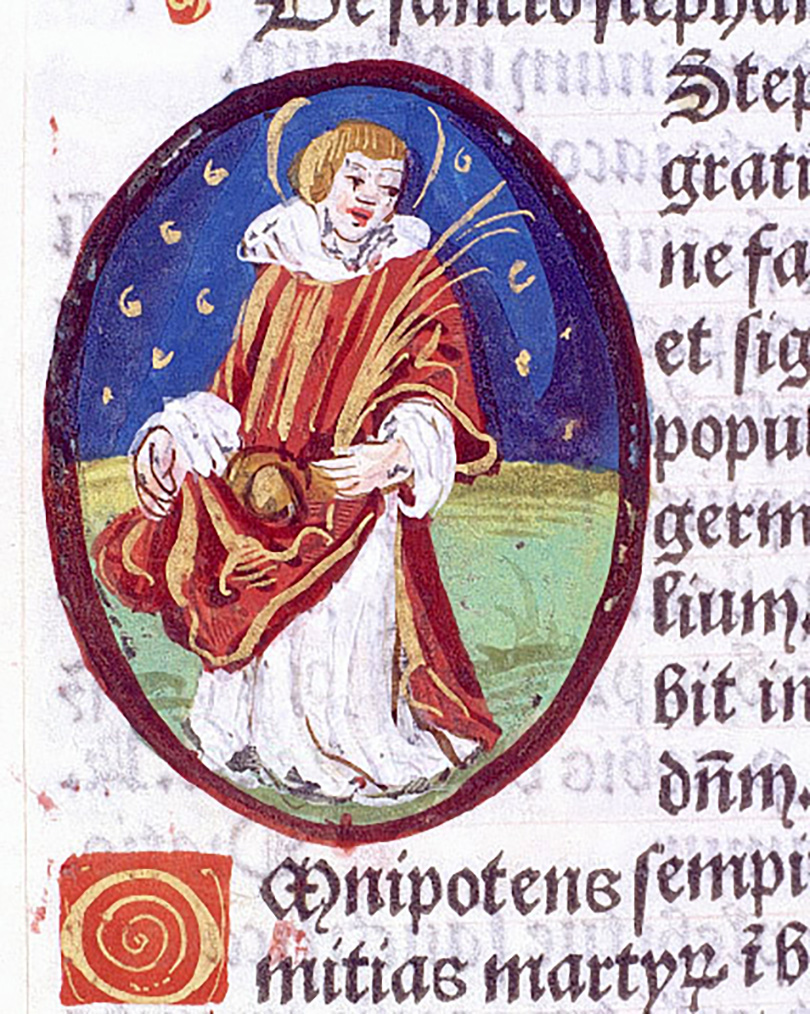 De sancto stephan
Step
grati
ne fa
et sig
popu
germ
lium.
bit in
dn̄m.
Omnipotens sempi
mitias martyꝝ ī b